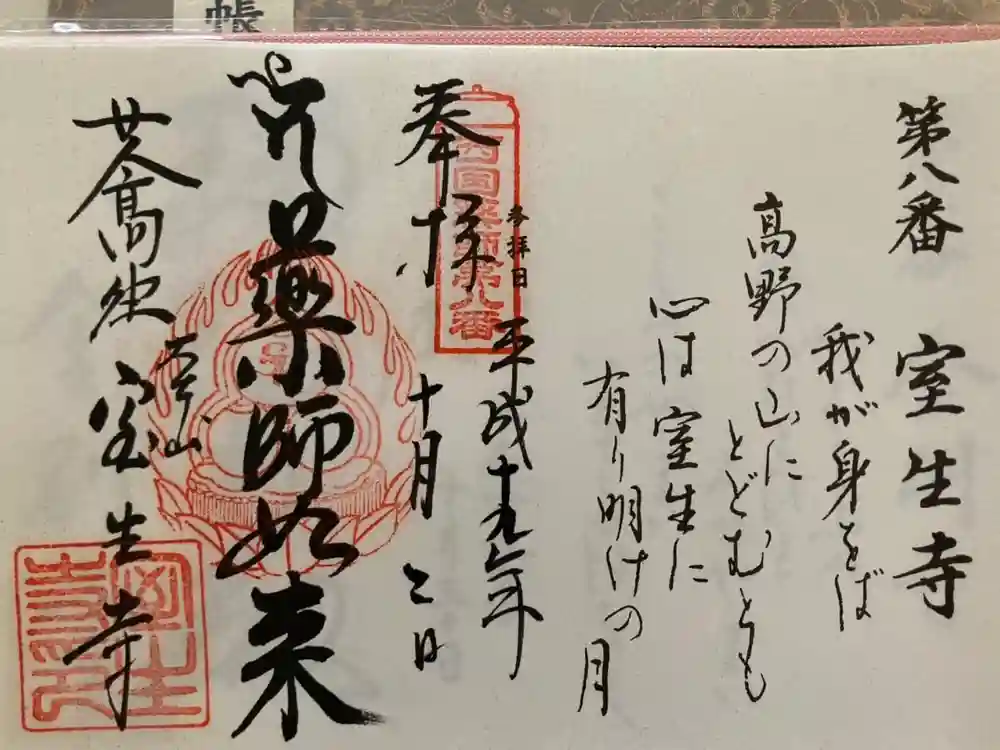 帳
第八番 室生寺
我が身をば
高野の山に
とどむとも
心は室生に
有り明けの月
西国薬師第八番
参拝日
平成十九年
十月二日
奉拝
薬師如来
女人高野
室生寺